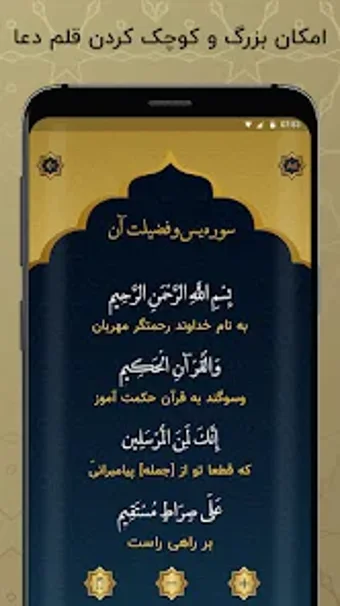 امکان بزرگ و کوچک کردن قلم دعا
سوره یس و فضیلت آن
بِسْمِ اللَّهِ الرَّحْمَنِ الرَّحِيمِ
به نام خداوند رحمتگر مهربان
وَالْقُرْآنِ الْحَكِيمِ
وسوگند به قرآن حکمت آموز
إِنَّكَ لَمِنَ الْمُرْسَلِينَ
که قطعا تو از [جمله] پیامبرانی
عَلَى صِرَاطٍ مُسْتَقِيمٍ
بر راهی راست